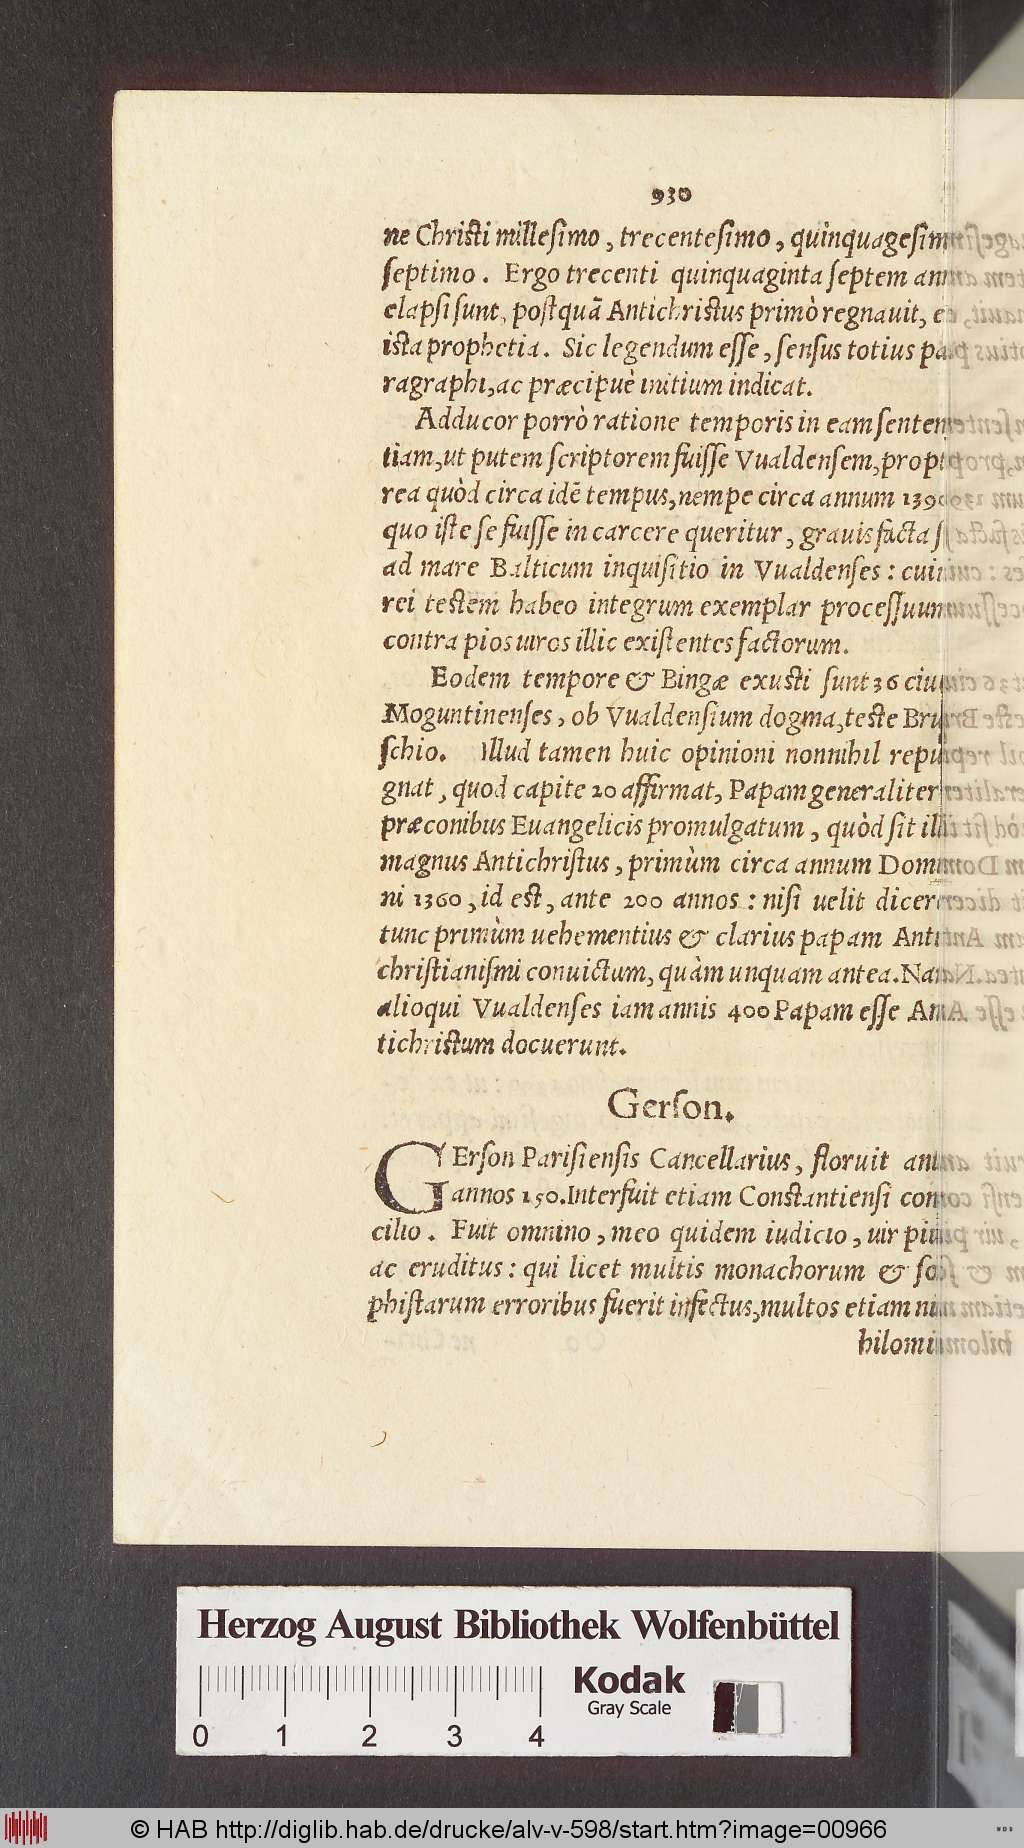 930
ne Christi millesimo, trecentesimo, quinquagesim
septimo. Ergo trecenti quinquaginta septem an
elapsi sunt, postquã Antichristus primò regnauit, e
ista prophetia. Sic legendum esse, sensus totius pa
ragraphi, ac præcipuè initium indicat.
Adducor porrò ratione temporis in eam senten
tiam, ut putem scriptorem fuisse Vualdensem, propt
rea quòd circa idẽ tempus, nempe circa annum 1390
quo iste se fuisse in carcere queritur, grauis facta s
ad mare Balticum inquisitio in Vualdenses: cui
rei testem habeo integrum exemplar processuum
contra pios uiros illic existentes factorum.
Eodem tempore & Bingæ exusti sunt 36 ciu
Moguntinenses, ob Vualdensium dogma, teste Bru
schio. Illud tamen huic opinioni nonnihil repu
gnat, quod capite 20 affirmat, Papam generaliter
præconibus Euangelicis promulgatum, quòd sit ill
magnus Antichristus, primùm circa annum Domi
ni 1360, id est, ante 200 annos: nisi uelit dicer
tunc primùm uehementius & clarius papam Anti
christianismi conuictum, quàm unquam antea. Nam
alioqui Vualdenses iam annis 400 Papam esse An
tichristum docuerunt.
Gerson.
GErson Parisiensis Cancellarius, floruit ante
annos 150. Interfuit etiam Constantiensi con
cilio. Fuit omnino, meo quidem iudicio, uir pius
ac eruditus: qui licet multis monachorum & so
phistarum erroribus fuerit infectus, multos etiam ni
hilomi
Herzog August Bibliothek Wolfenbüttel
Kodak
Gray Scale
0 1 2 3 4
© HAB http://diglib.hab.de/drucke/alv-v-598/start.htm?image=00966